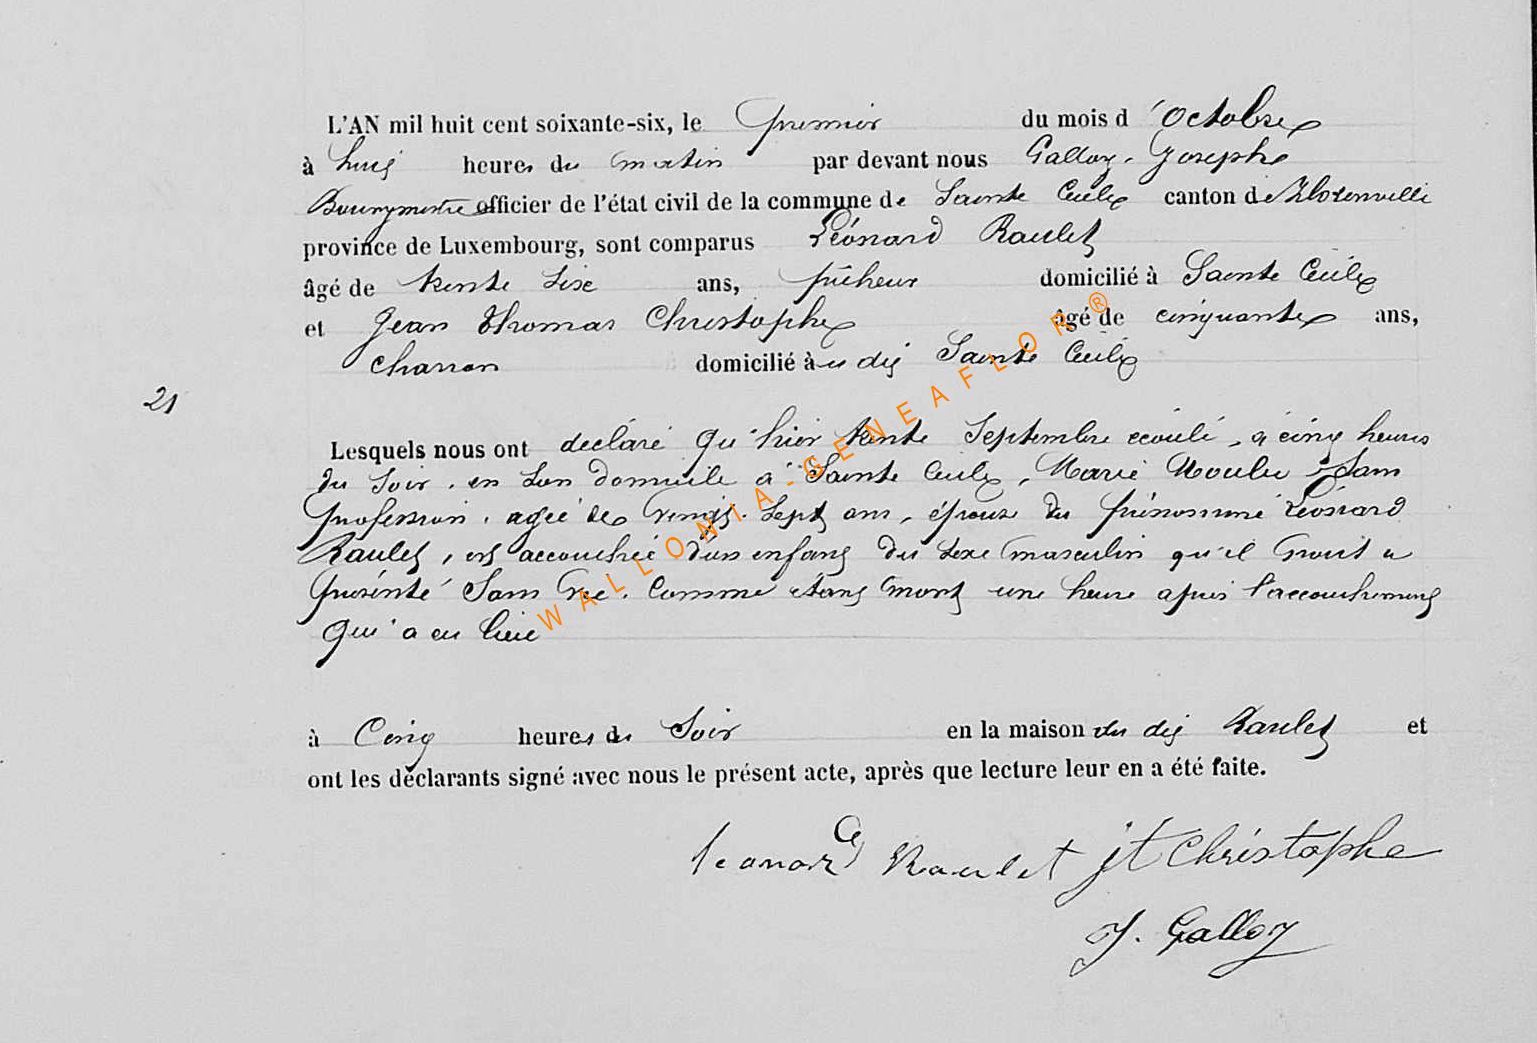 L'AN mil huit cent soixante-six, le premier du mois d'octobre
à huit heures du matin par devant nous Galloy, Joseph
Bourgmestre officier de l'état civil de la commune de Sainte Cécile canton de Florenville
province de Luxembourg, sont comparus Léonard Raulet
âgé de trente six ans, pêcheur domicilié à Sainte Cécile
et Jean Thomas Christophe âgé de cinquante ans,
charron domicilié à u dit Sainte Cécile
21
Lesquels nous ont déclaré qu'hier trente Septembre écoulé, à cinq heures
du soir, en son domicile à Sainte Cécile, Marie, Sans
profession, agée de vingt-sept ans, épouse du prénommé Léonard
Raulet, est accouchée d'un enfant du sexe masculin qu'il nous a
présenté Sans vie, comme étant mort une heure après l'accouchement
qui a eu lieu
à Cinq heures du Soir en la maison du dit Raulet et
ont les déclarants signé avec nous le présent acte, après que lecture leur en a été faite.
leonard Raulet jt Christophe
J. Galloy
WALLONIA-GENEAFLOR®